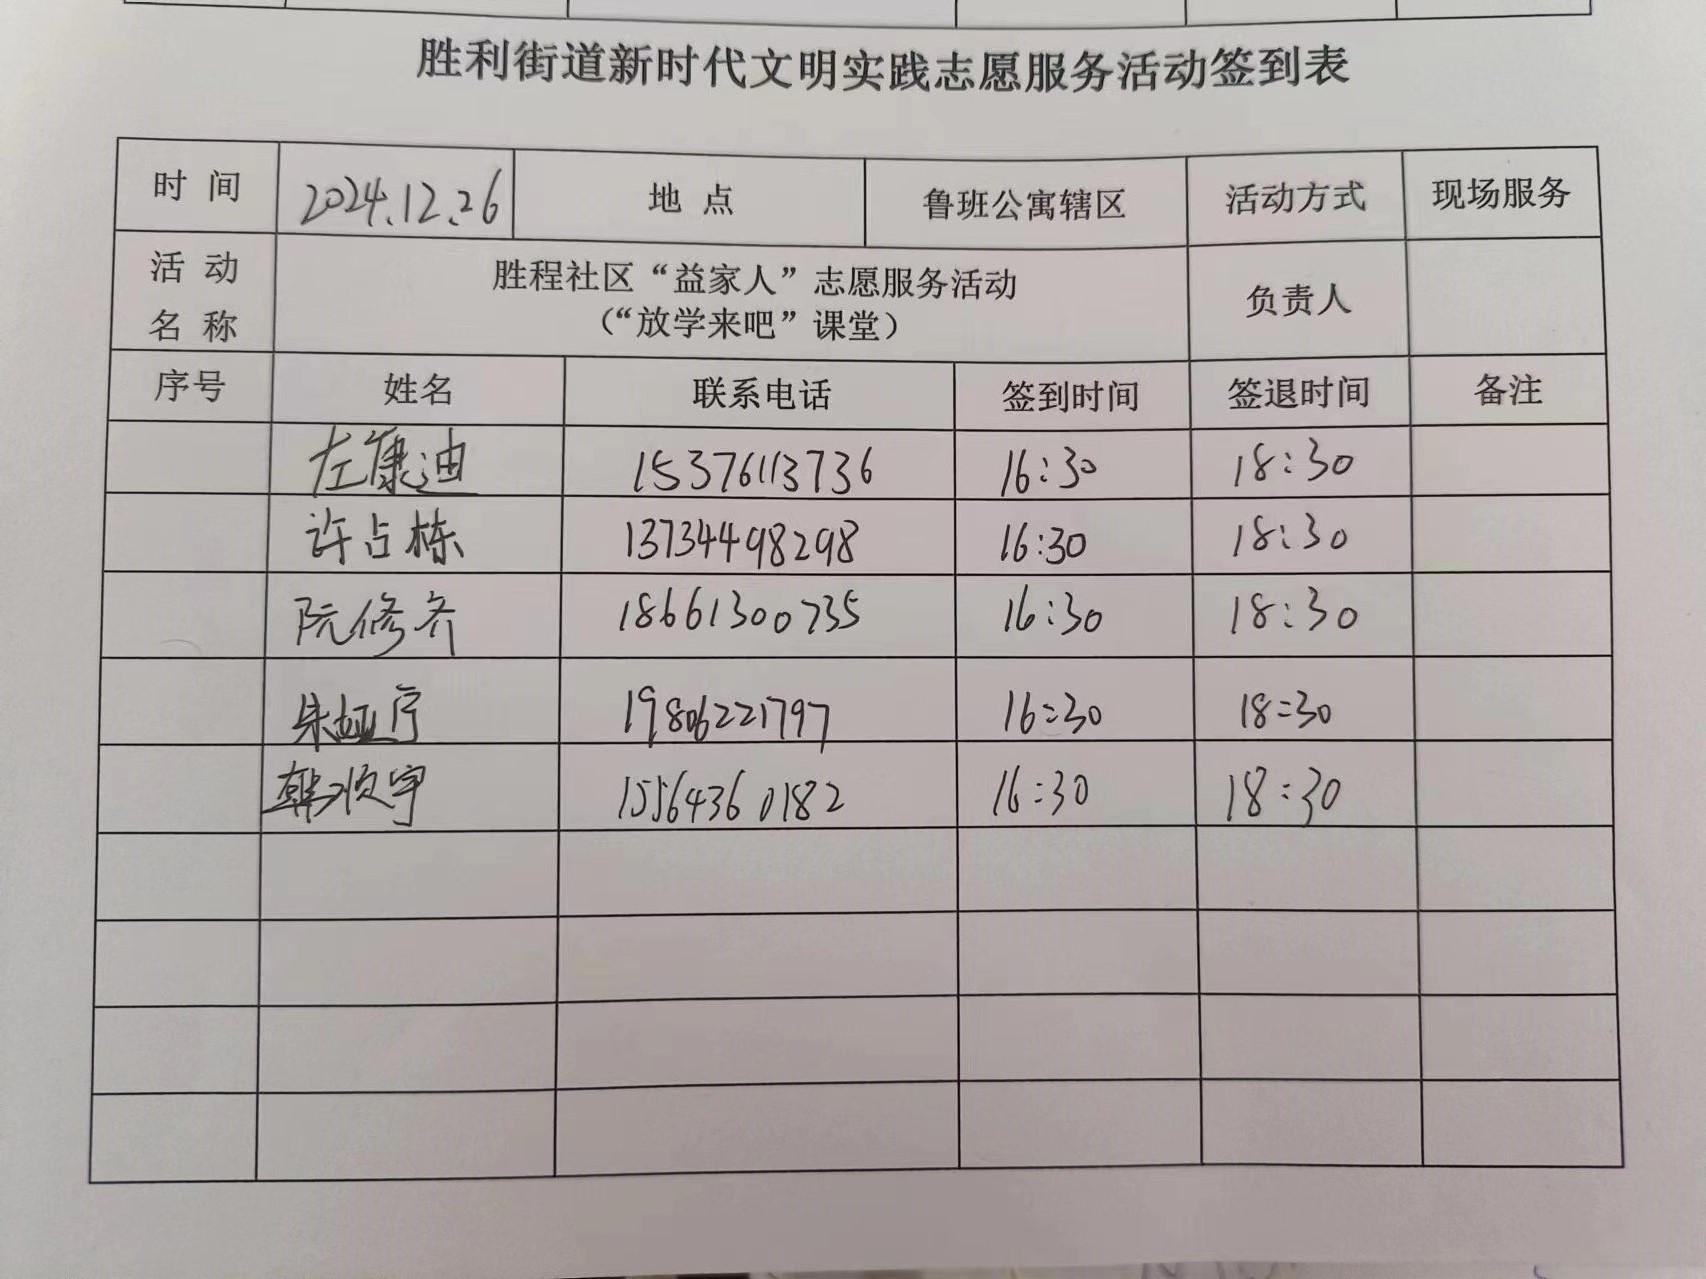 胜利街道新时代文明实践志愿服务活动签到表
时 间 2024.12.26 地 点 鲁班公寓辖区 活动方式 现场服务
活 动 名 称 胜程社区“益家人”志愿服务活动 (“放学来吧”课堂) 负责人
序号 姓名 联系电话 签到时间 签退时间 备注
左康迪 15376113736 16:30 18:30
许占栋 13734498298 16:30 18:30
阮修齐 18661300735 16:30 18:30
朱娅宁 19806221797 16:30 18:30
韩顺宇 15564360182 16:30 18:30